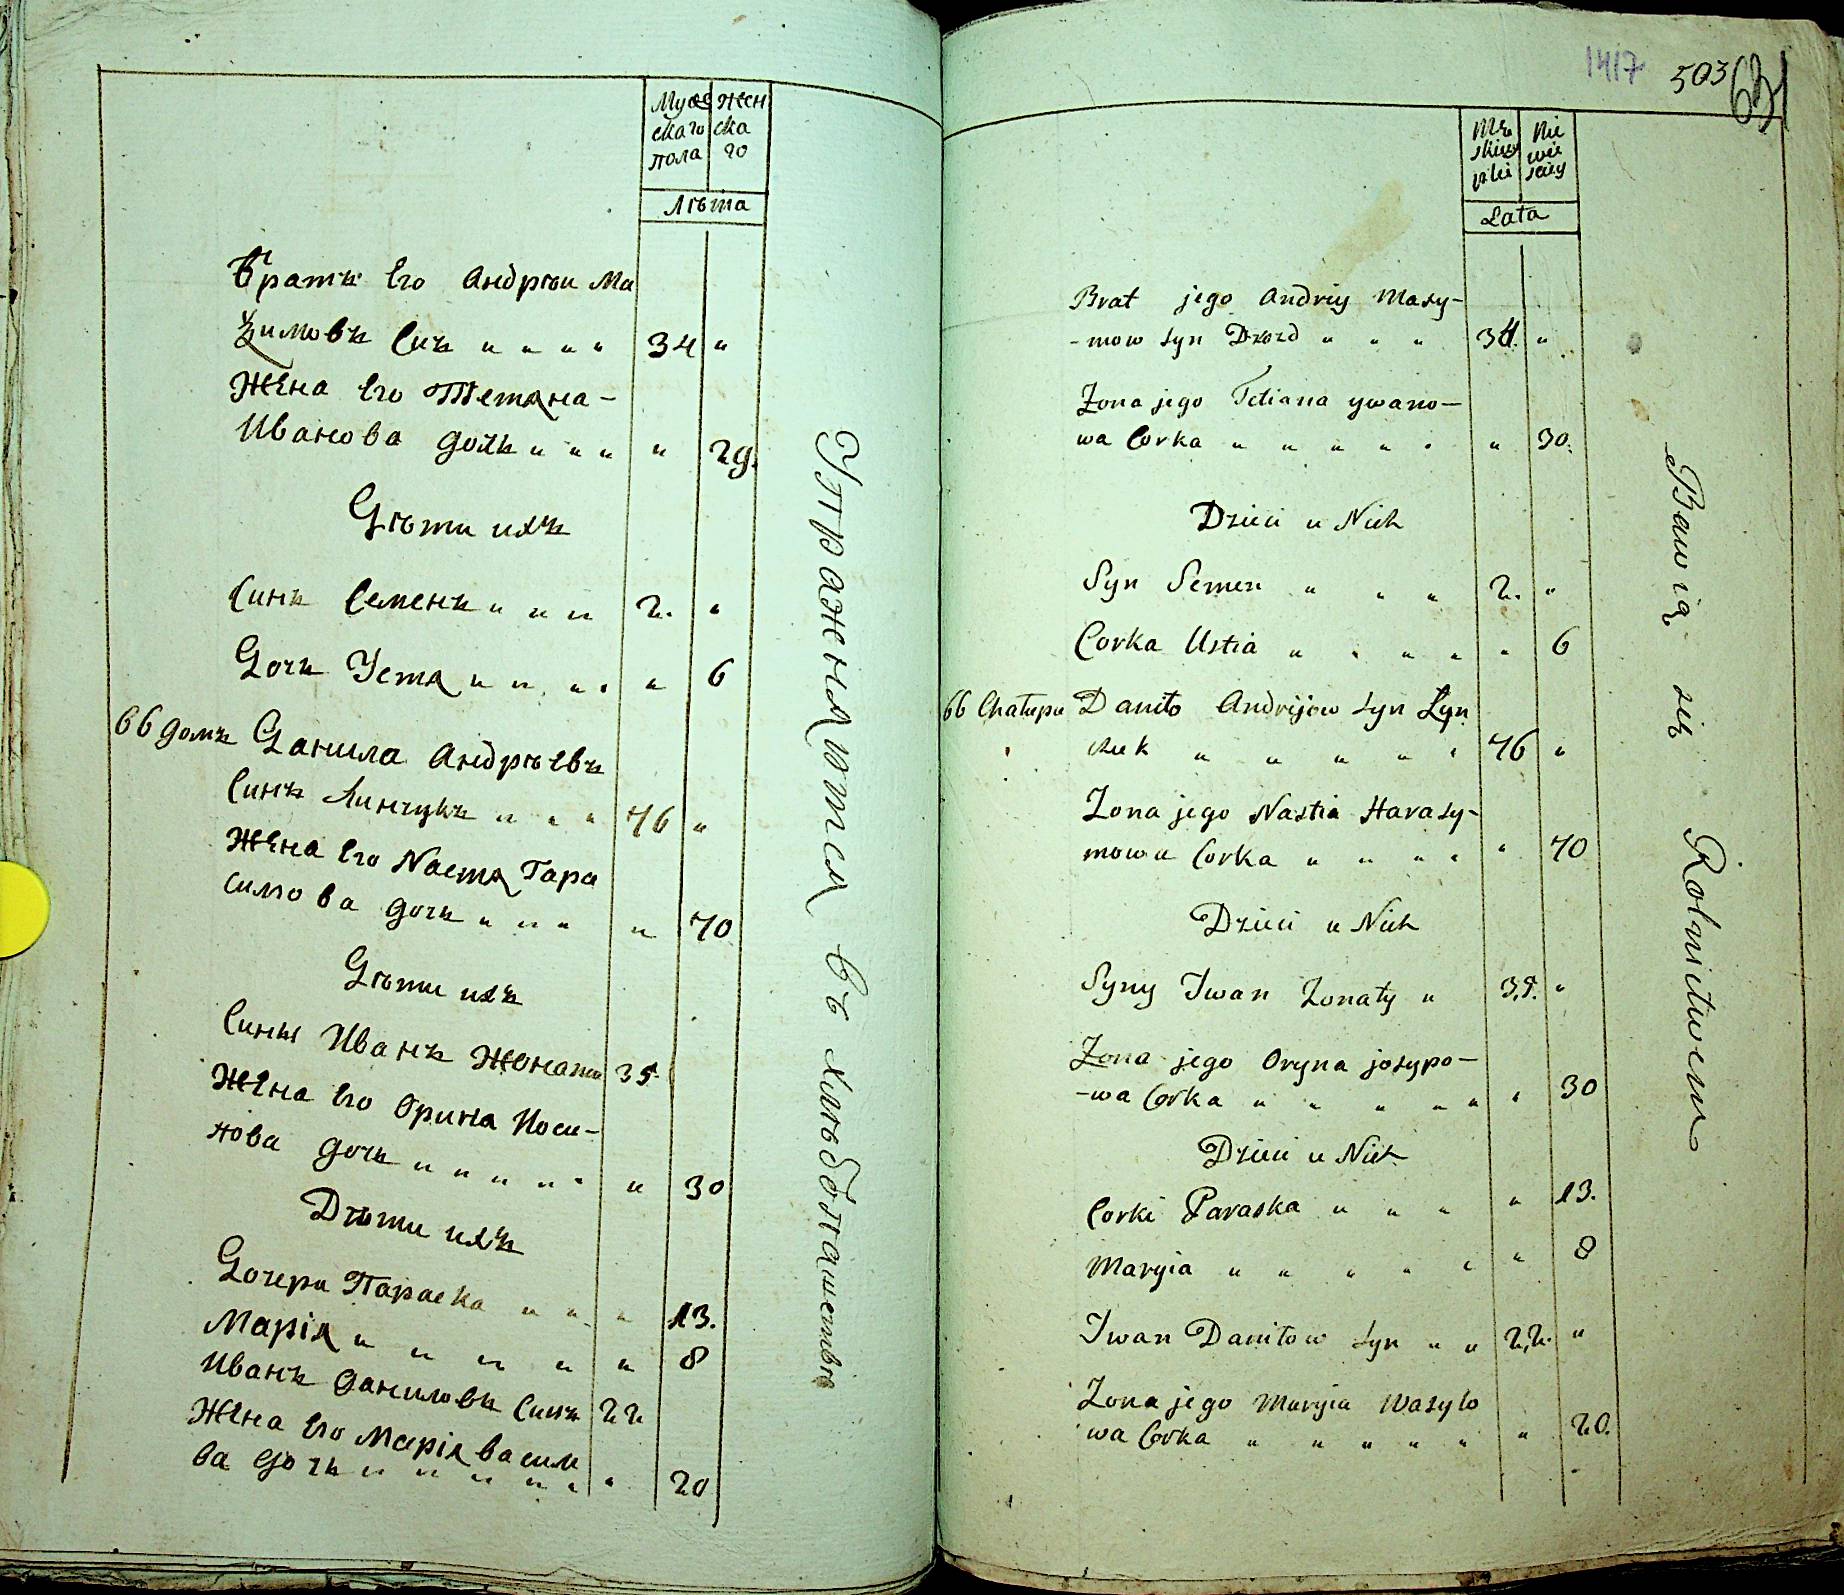 Мужескаго пола
Женскаго
Лѣта
Братъ Его Андрѣи Ма
Ѯимовъ Синъ " " " " 34 "
Жена Его Тетяна -
Иванова дочъ " " " " 29.
Дѣти ихъ
Синъ Семенъ " " " 2. "
Дочъ Устя " " " " " 6
66 домъ Данила Андрѣевъ
Синъ Линчукъ " " " 76 "
Жена Его Nастя Гара
симова дочъ " " " " 70
Дѣти ихъ
Сины Иванъ Жонати 35.
Жена Его Орина Иоси-
пова дочъ " " " " " " 30
Дѣти ихъ
Дочери Параска " " " 13.
Марія " " " " " 8
Иванъ Даниловъ Синъ 22
Жена Его Марія Васили
ва дочъ " " " " " " 20
Упражняются въ хлѣбопашествѣ
1417 503 631
Męskiey płci
Niewieściey
Lata
Brat jego Andriy Masy-
-mow syn Drozd " " " 34. "
Zona jego Tetiana ywano-
wa Corka " " " " " " 30.
Dzieci u Nich
Syn Semen " " " 2. "
Corka Ustia " " " " " 6
66 Chałupa Daniło Andrijow syn Lyn
czuk " " " " " 76 "
Zona jego Nastia Harasy-
mowa Corka " " " " " 70
Dzieci u Nich
Syny Iwan Zonaty " 35. "
Zona jego Oryna josypo-
-wa Corka " " " " " " 30
Dzieci u Nich
Corki Paraska " " " " 13.
Maryia " " " " " " 8
Iwan Daniłow syn " " 22. "
Zona jego Maryia Wasylo
wa Corka " " " " " " 20.
Bawią się Rolnictwem